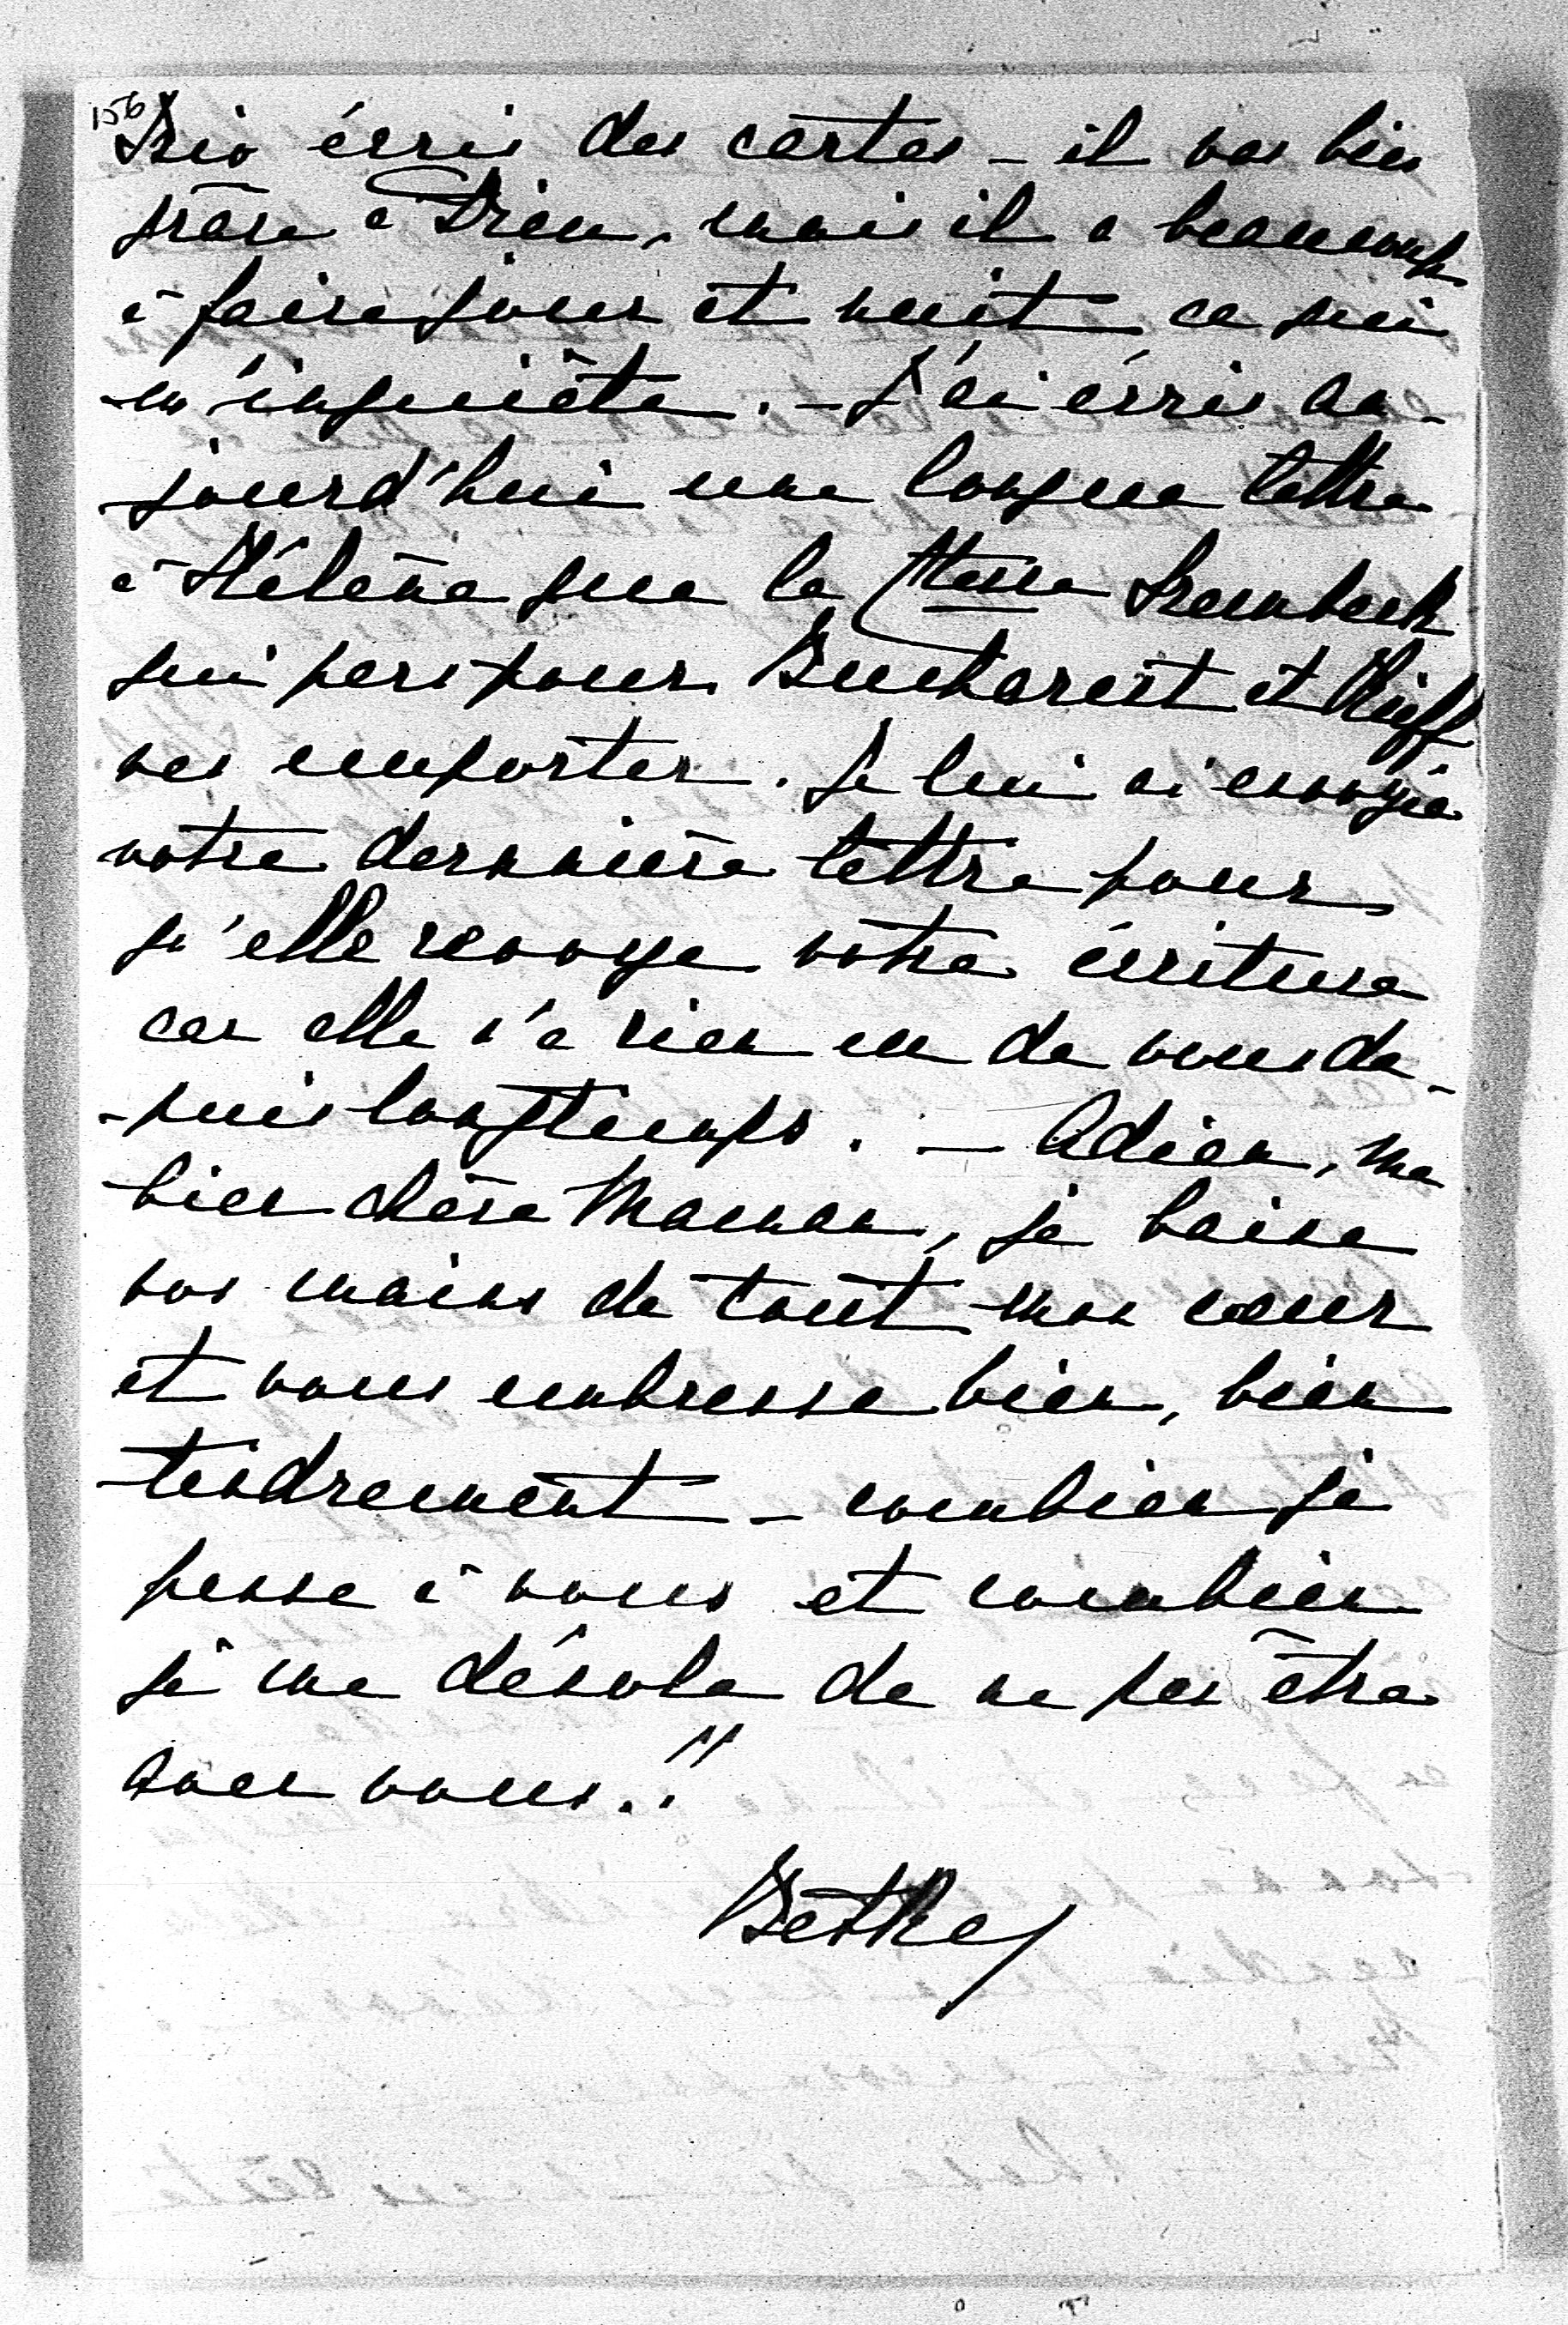 156
écris des cartes – il va bien
grâce à Dieu, mais il a beaucoup
à faire jour et nuit ce qui
m'inquiète. – J'ai écris au-
jourd'hui une longue lettre
à Hélène que la Ctesse
qui pars pour Bucharest et Kieff
va emporter. Je lui ai envoyé
votre dernière lettre pour
qu'elle revoye votre écriture
car elle n'a rien eu de vous de-
-puis longtemps. – Adieu, ma
bien chère Maman, je baise
vos mains de tout mon cœur
et vous embrasse bien, bien
tendrement – combien je
pense à vous et combien
je me désole de ne pas être
avec vous!!